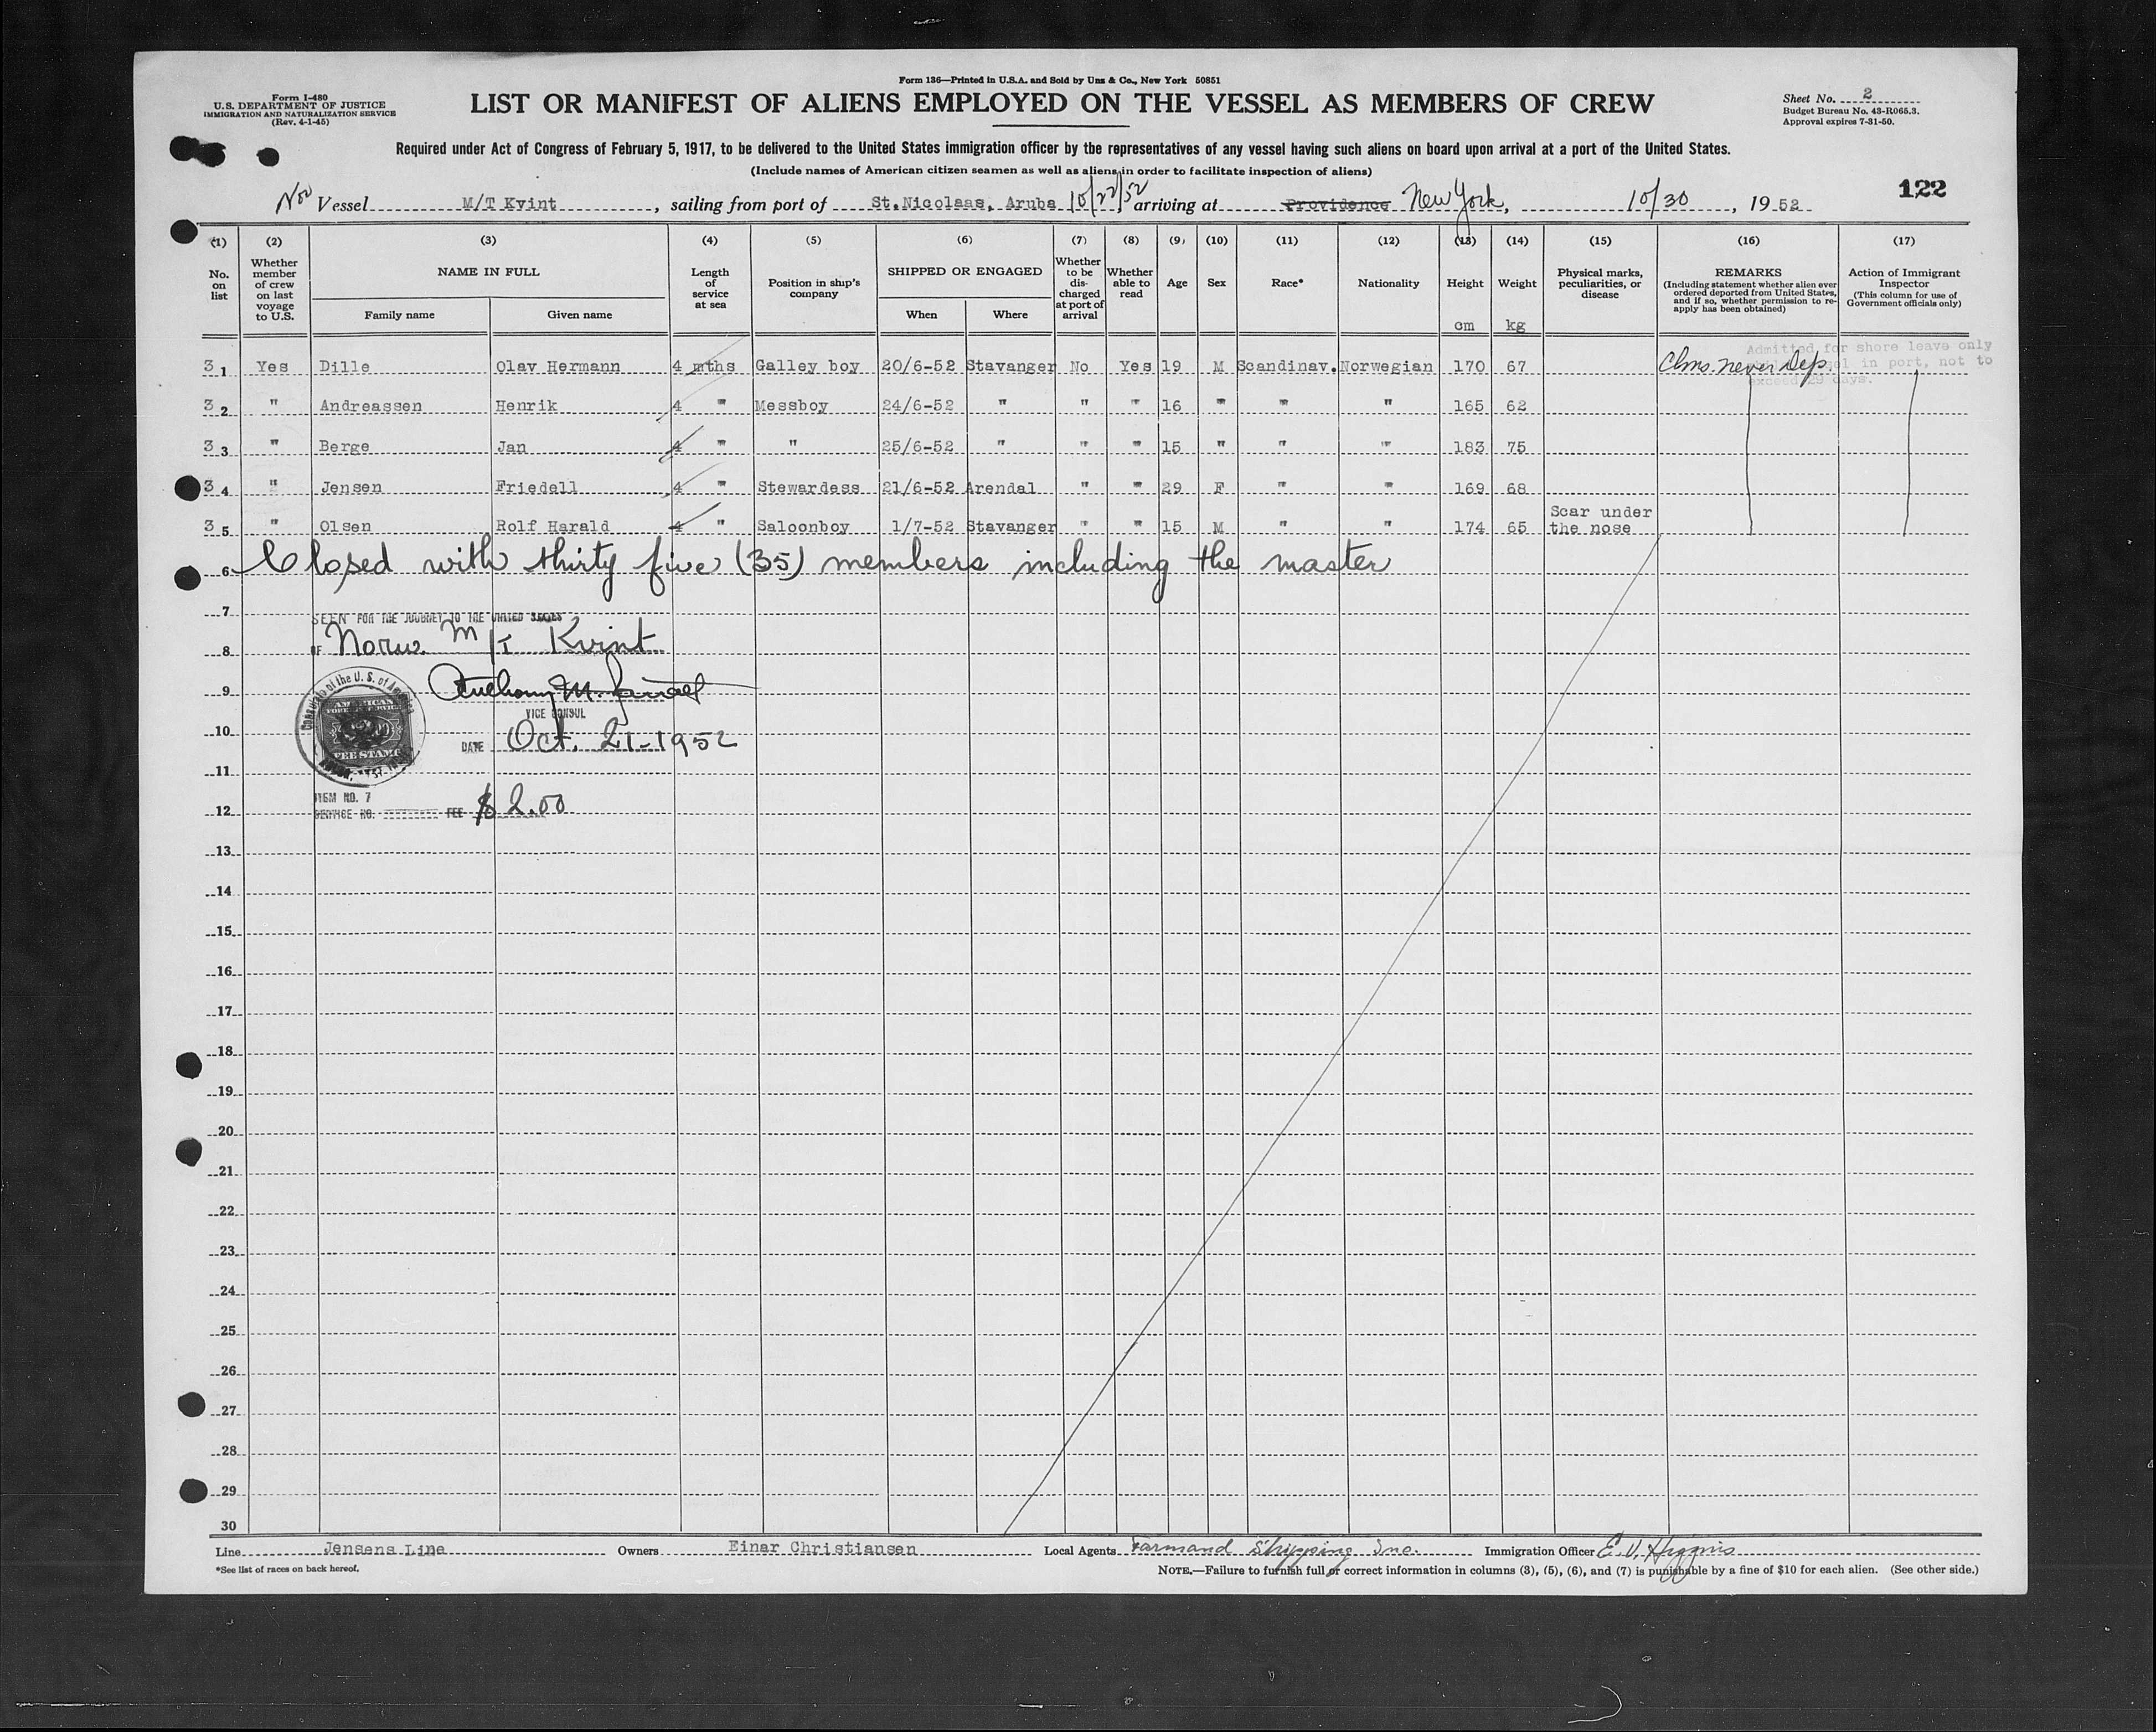 Form 136—Printed in U.S.A. and Sold by Unz & Co., New York 50851
Form I-480
U.S. DEPARTMENT OF JUSTICE
IMMIGRATION AND NATURALIZATION SERVICE
(Rev. 4-1-45)
LIST OR MANIFEST OF ALIENS EMPLOYED ON THE VESSEL AS MEMBERS OF CREW
Sheet No. 2
Budget Bureau No. 43-R065.3.
Approval expires 7-31-50.
Required under Act of Congress of February 5, 1917, to be delivered to the United States immigration officer by the representatives of any vessel having such aliens on board upon arrival at a port of the United States.
(Include names of American citizen seamen as well as aliens in order to facilitate inspection of aliens)
122
Vessel M/T Kvint, sailing from port of St.Nicolaas, Aruba 10/22/52 arriving at Providence New York, 10/30, 1952
(1) (2) (3) (4) (5) (6) (7) (8) (9) (10) (11) (12) (13) (14) (15) (16) (17)
No. on list
Whether member of crew on last voyage to U.S.
NAME IN FULL
Family name
Given name
Length of service at sea
Position in ship's company
SHIPPED OR ENGAGED
When
Where
Whether to be discharged at port of arrival
Whether able to read
Age
Sex
Race*
Nationality
Height
cm
Weight
kg
Physical marks, peculiarities, or disease
REMARKS
(Including statement whether alien ever ordered deported from United States, and if so, whether permission to reapply has been obtained)
Action of Immigrant Inspector
(This column for use of Government officials only)
Admitted for shore leave only
in port, not to
exceed 29 days.
3 1 Yes Dille Olav Hermann 4 mths Galley boy 20/6-52 Stavanger No Yes 19 M Scandinav. Norwegian 170 67 Clms. never dep.
3 2 " Andreassen Henrik 4 " Messboy 24/6-52 " " " 16 " " " 165 62
3 3 " Berge Jan 4 " " 25/6-52 " " " 15 " " " 183 75
3 4 " Jensen Friedell 4 " Stewardess 21/6-52 Arendal " " 29 F " " 169 68
3 5 " Olsen Rolf Harald 4 " Saloonboy 1/7-52 Stavanger " " 15 M " " 174 65 Scar under the nose
6 Closed with thirty five (35) members including the master
7 SEEN FOR THE JOURNEY TO THE UNITED STATES
8 OF Norw. M/T Kvint
9 Anthony M.
VICE CONSUL
10 DATE Oct. 21-1952
Consulate of the U. S. of America
AMERICAN
FEE STAMP
11
ITEM NO. 7
12 SERVICE NO. FEE $ 2.00
13
14
15
16
17
18
19
20
21
22
23
24
25
26
27
28
29
30
Line Jensens Line Owners Einar Christiansen Local Agents Farmand Shipping Inc. Immigration Officer E. V. Higgins
*See list of races on back hereof.
NOTE.—Failure to furnish full or correct information in columns (3), (5), (6), and (7) is punishable by a fine of $10 for each alien. (See other side.)